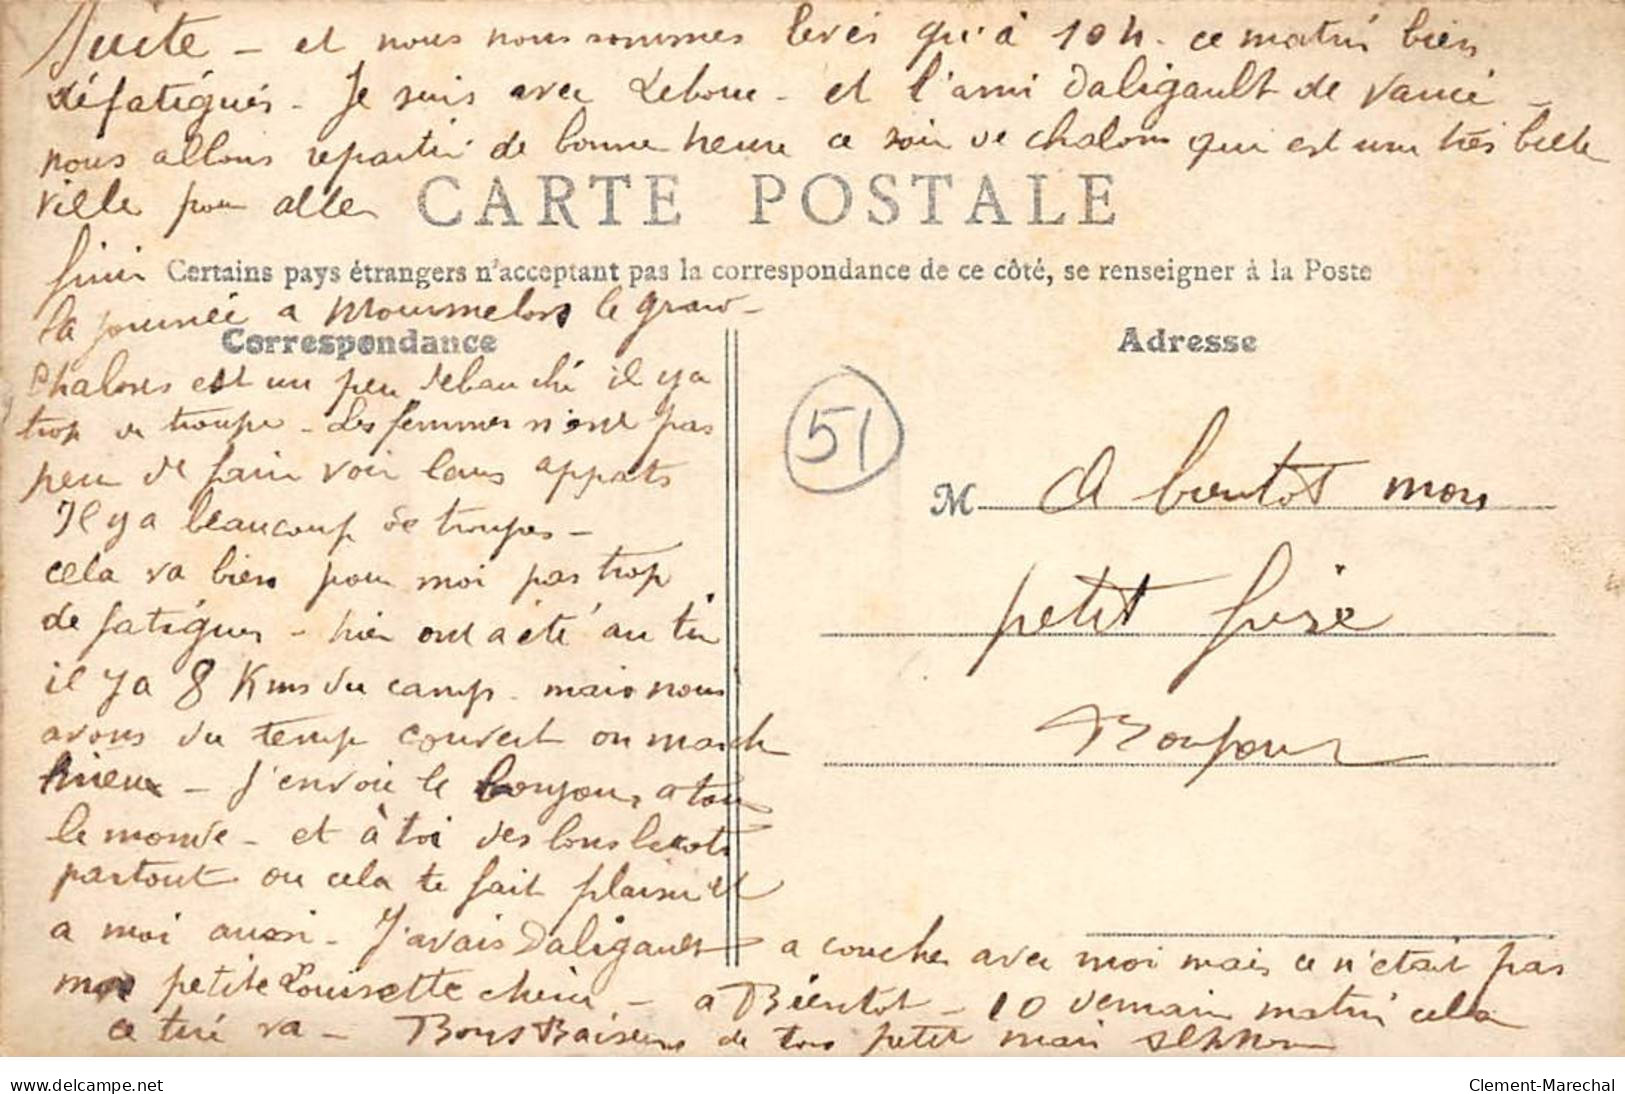 Suite - et nous nous sommes levés qu'à 10h. ce matin bien
défatigués - Je suis avec Leboue - et l'ami Daligault de Vancé -
nous allons repartir de bonne heure ce soir de chalons qui est une très belle
ville pour aller
CARTE POSTALE
finir
Certains pays étrangers n'acceptant pas la correspondance de ce côté, se renseigner à la Poste
la journée a Mourmelon le gran-
Correspondance
Adresse
Chalons est un peu débauché il y a
trop de troupe - Les femmes n'ont pas
peur de faire voir leurs appats
Il y a beaucoup de troupes -
cela va bien pour moi pas trop
de fatigues - hier ont a été au tir
il y a 8 Kms du camp - mais nous
avons du temp couvert on march
mieux - J'envoie le bonjour a tou
le monde - et à toi des bons becots
partout ou cela te fait plaisir et
a moi aussi - J'avais Daligault a coucher avec moi mais ce n'était pas
ma petite Louisette chérie - a Bientot - 10 demain matin cela
ce tiré va - Bons Baisers de ton petit mari
51
M A bientot mon
petit frisé
Bonjour
delcampe.net
Clement-Marechal